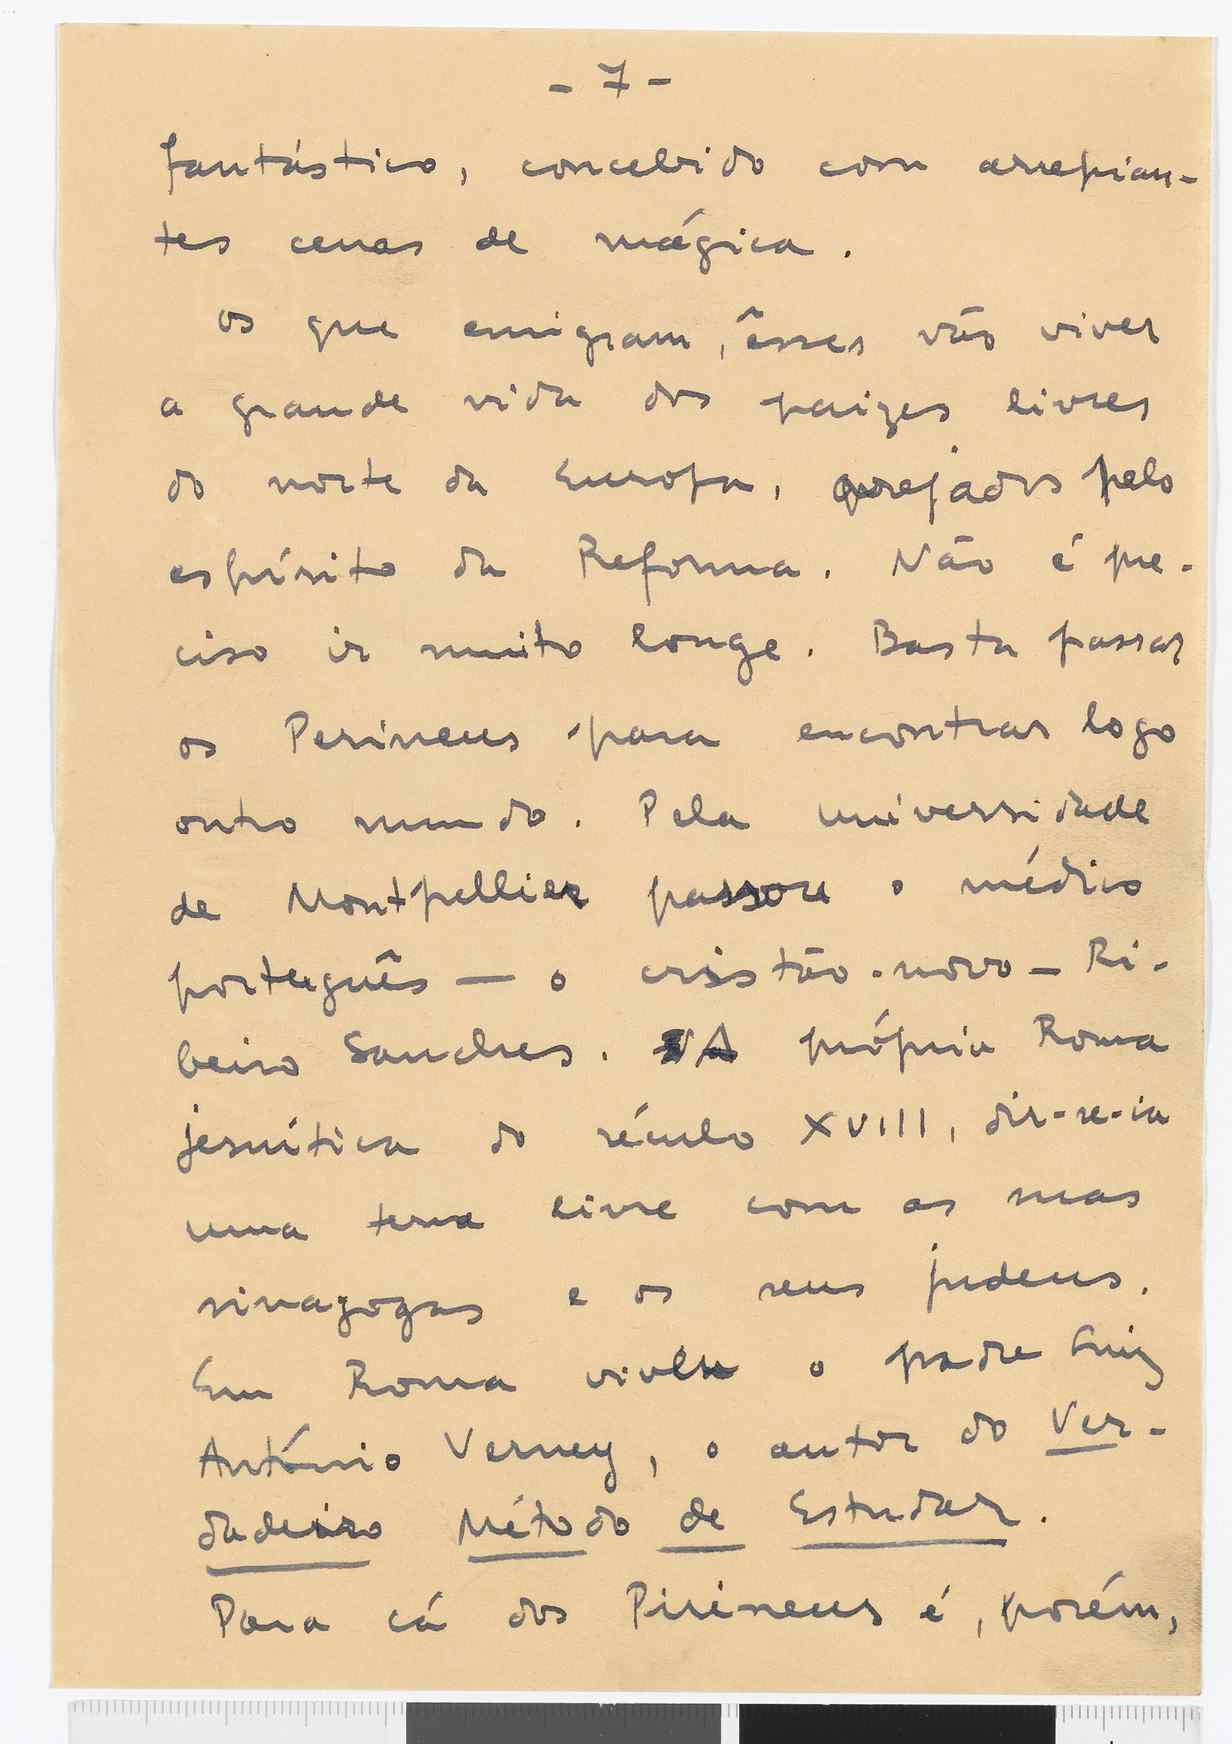 - 7 -
fantástico, concebido com arrepian-
tes cenas de mágica.
os que emigram, êsses vão viver
a grande vida dos paizes livres
do norte da Europa, arejados pelo
espírito da Reforma. Não é pre-
ciso ir muito longe. Basta passar
os Perineus para encontrar logo
outro mundo. Pela universidade
de Montpellier passou o médico
português — o cristão-novo — Ri-
beiro Sanches. A própria Roma
jesuítica do século XVIII, dir-se-ia
uma terra livre com as suas
sinagogas e os seus judeus.
Em Roma viveu o padre Luiz
António Verney, o autor do Ver-
dadeiro Método de Estudar.
Para cá dos Pirineus é, porém,